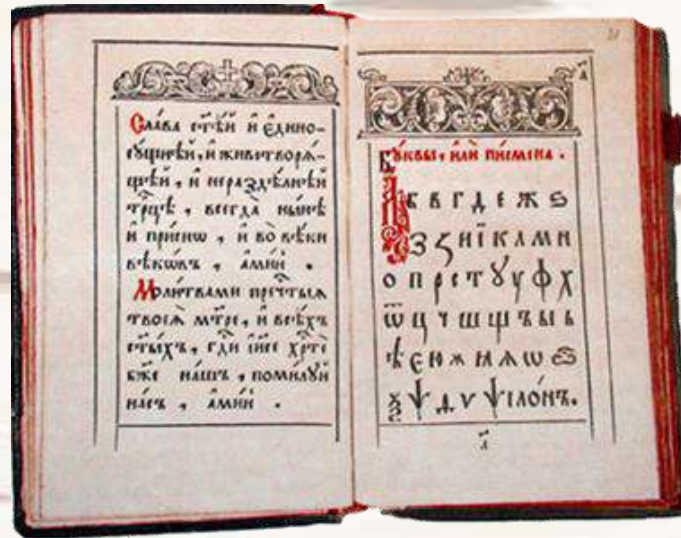 Сла́ва ст҃ѣ́й и҆ є҆дино-
сꙋ́щнѣй, и҆ животворѧ́-
щей, и҆ нераздѣ́лнѣй
трⷪ҇цѣ, всегда̀ ны́нѣ
и҆ при́снѡ, и҆ во̀ вѣ́ки
вѣкѡ́въ, а҆ми́нь.
Моли́твами пречⷭ҇тыѧ
твоеѧ̀ мт҃ре, и҆ всѣ́хъ
ст҃ы́хъ, гдⷭ҇и і҆и҃се хрⷭ҇тѐ
бж҃е на́шъ, поми́лꙋй
на́съ, а҆ми́нь.
Бꙋ́квы, и҆лѝ пи́смена.
А Б В Г Д Е Ж Ѕ
З И Ї К Л М Н
О П Р С Т Ꙋ У Ф Х
Ѿ Ц Ч Ш Щ Ъ Ы Ь
Ѣ Є Ю Ѫ Ѧ Ѡ
Ѯ Ѱ Ѵ ѱіло́нъ.